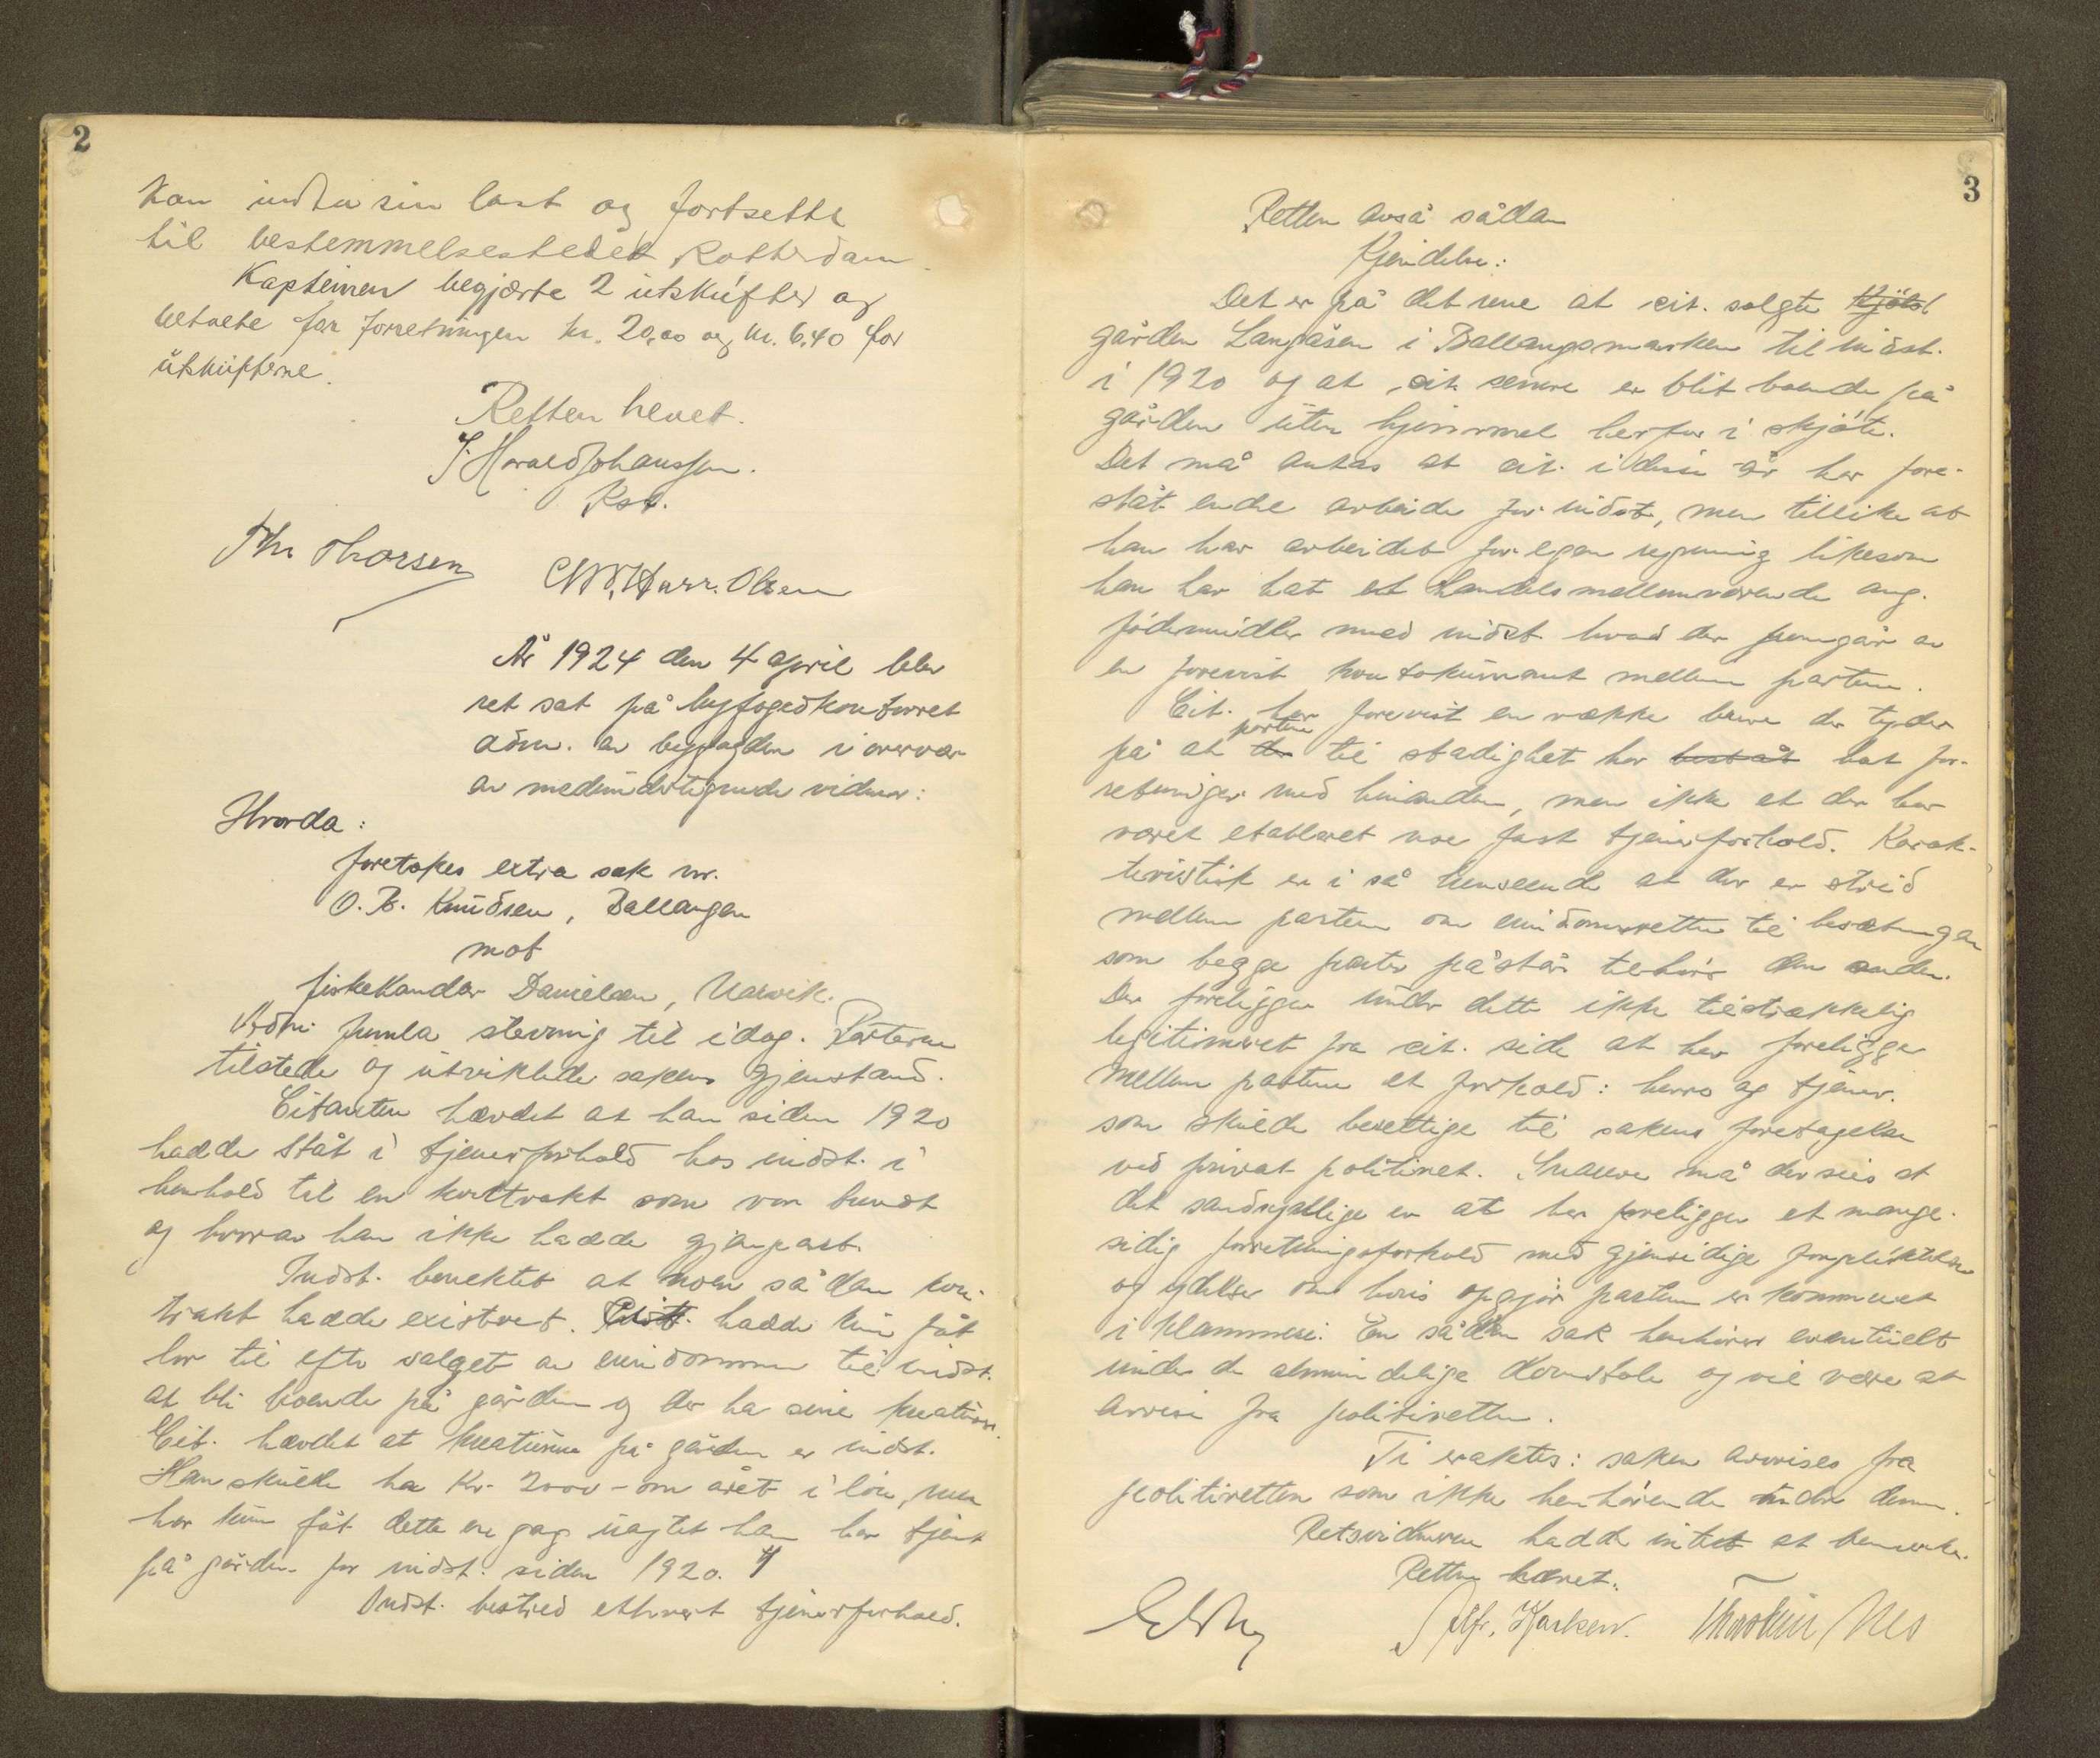 2
kan indta sin last og fortsette
til bestemmelsesstedet Rotterdam.
Kapteinen begjærte 2 utskrifter og
betalte for forretningen kr. 20,00 og kr. 6,40 for
utskrifterne.
Retten hevet.
J. Harald Johanssen.
Kst.
Thv Thorsen
Chr. Harr. Olsen
År 1924 den 4 april blev
ret sat på byfogedkontorret
adm. av byfogden i overvær
av medundertegnede vidner:
Hvorda:
foretokes extra sak nr.
O. B. Knudsen, Ballangen
mot
fiskehandler Danielsen, Narvik.
Adm. fremla stevning til idag. Parterne
tilstede og utviklede sakens gjenstand.
Citanten hævdet at han siden 1920
hadde ståt i tjenerforhold hos indst. i
henhold til en kontrakt som var brendt
og hvorav han ikke hadde gjenpart.
Indst. benektet at noen sådan kon-
trakt hadde existert. Citt. hadde kun fåt
lov til efter salget av eiendommen til indst.
at bli boende på gården og der ha sine kreaturer.
Cit. hævdet at kreaturene på gården er indst.
Han skulde ha Kr. 2000 - om året i løn, men
har kun fåt dette en gag uagtet han har tjent
på gården for indst. siden 1920.
Indst. bestred ethvert tjenerforhold.
3
Retten avsa sådan
Kjendelse:
Det er på det rene at cit. solgte
gården Langåsen i Ballangsmarken til indst.
i 1920 og at cit. senere er blit boende på
gården uten hjemmel herfor i skjøte.
Det må antas at cit. i disse år har fore-
ståt endel arbeide for indst., men tillike at
han har arbeidet for egen regning likesom
han har hat et handelsmellemværende ang.
fødemidler med indst. hvad der fremgår av
en forevist kontokurant mellem partene.
Cit. har forevist en række breve der tyder
på at partene til stadighet har bestået hat for-
retninger med hinanden, men ikke at der har
været etableret noe fast tjenerforhold. Karak-
teristisk er i så henseende at der er strid
mellem partene om eiendomsretten til besætningen
som begge parter påstår tilhører den anden.
Der foreligger under dette ikke tilstrækkelig
legitimeret fra cit. side at her foreligger
mellem partene et forhold: herre og tjener.
som skulde berettige til sakens foretagelse
ved privat politiret. Snarere må der sies at
det sandsynlige er at her foreligger et mange-
sidig forretningsforhold med gjensidige forpliktelser
og ydelser om hvis opgjør partene er kommet
i klammeri. En sådan sak henhører eventuelt
under de almindelige domstole og vil være at
avvise fra politiretten.
Ti eraktes: saken avvises fra
politiretten som ikke henhørende under denne.
Retsvidnerne hadde intet at bemerke.
Retten hævet.
Alfr. Karlsen. Thorstein Nes